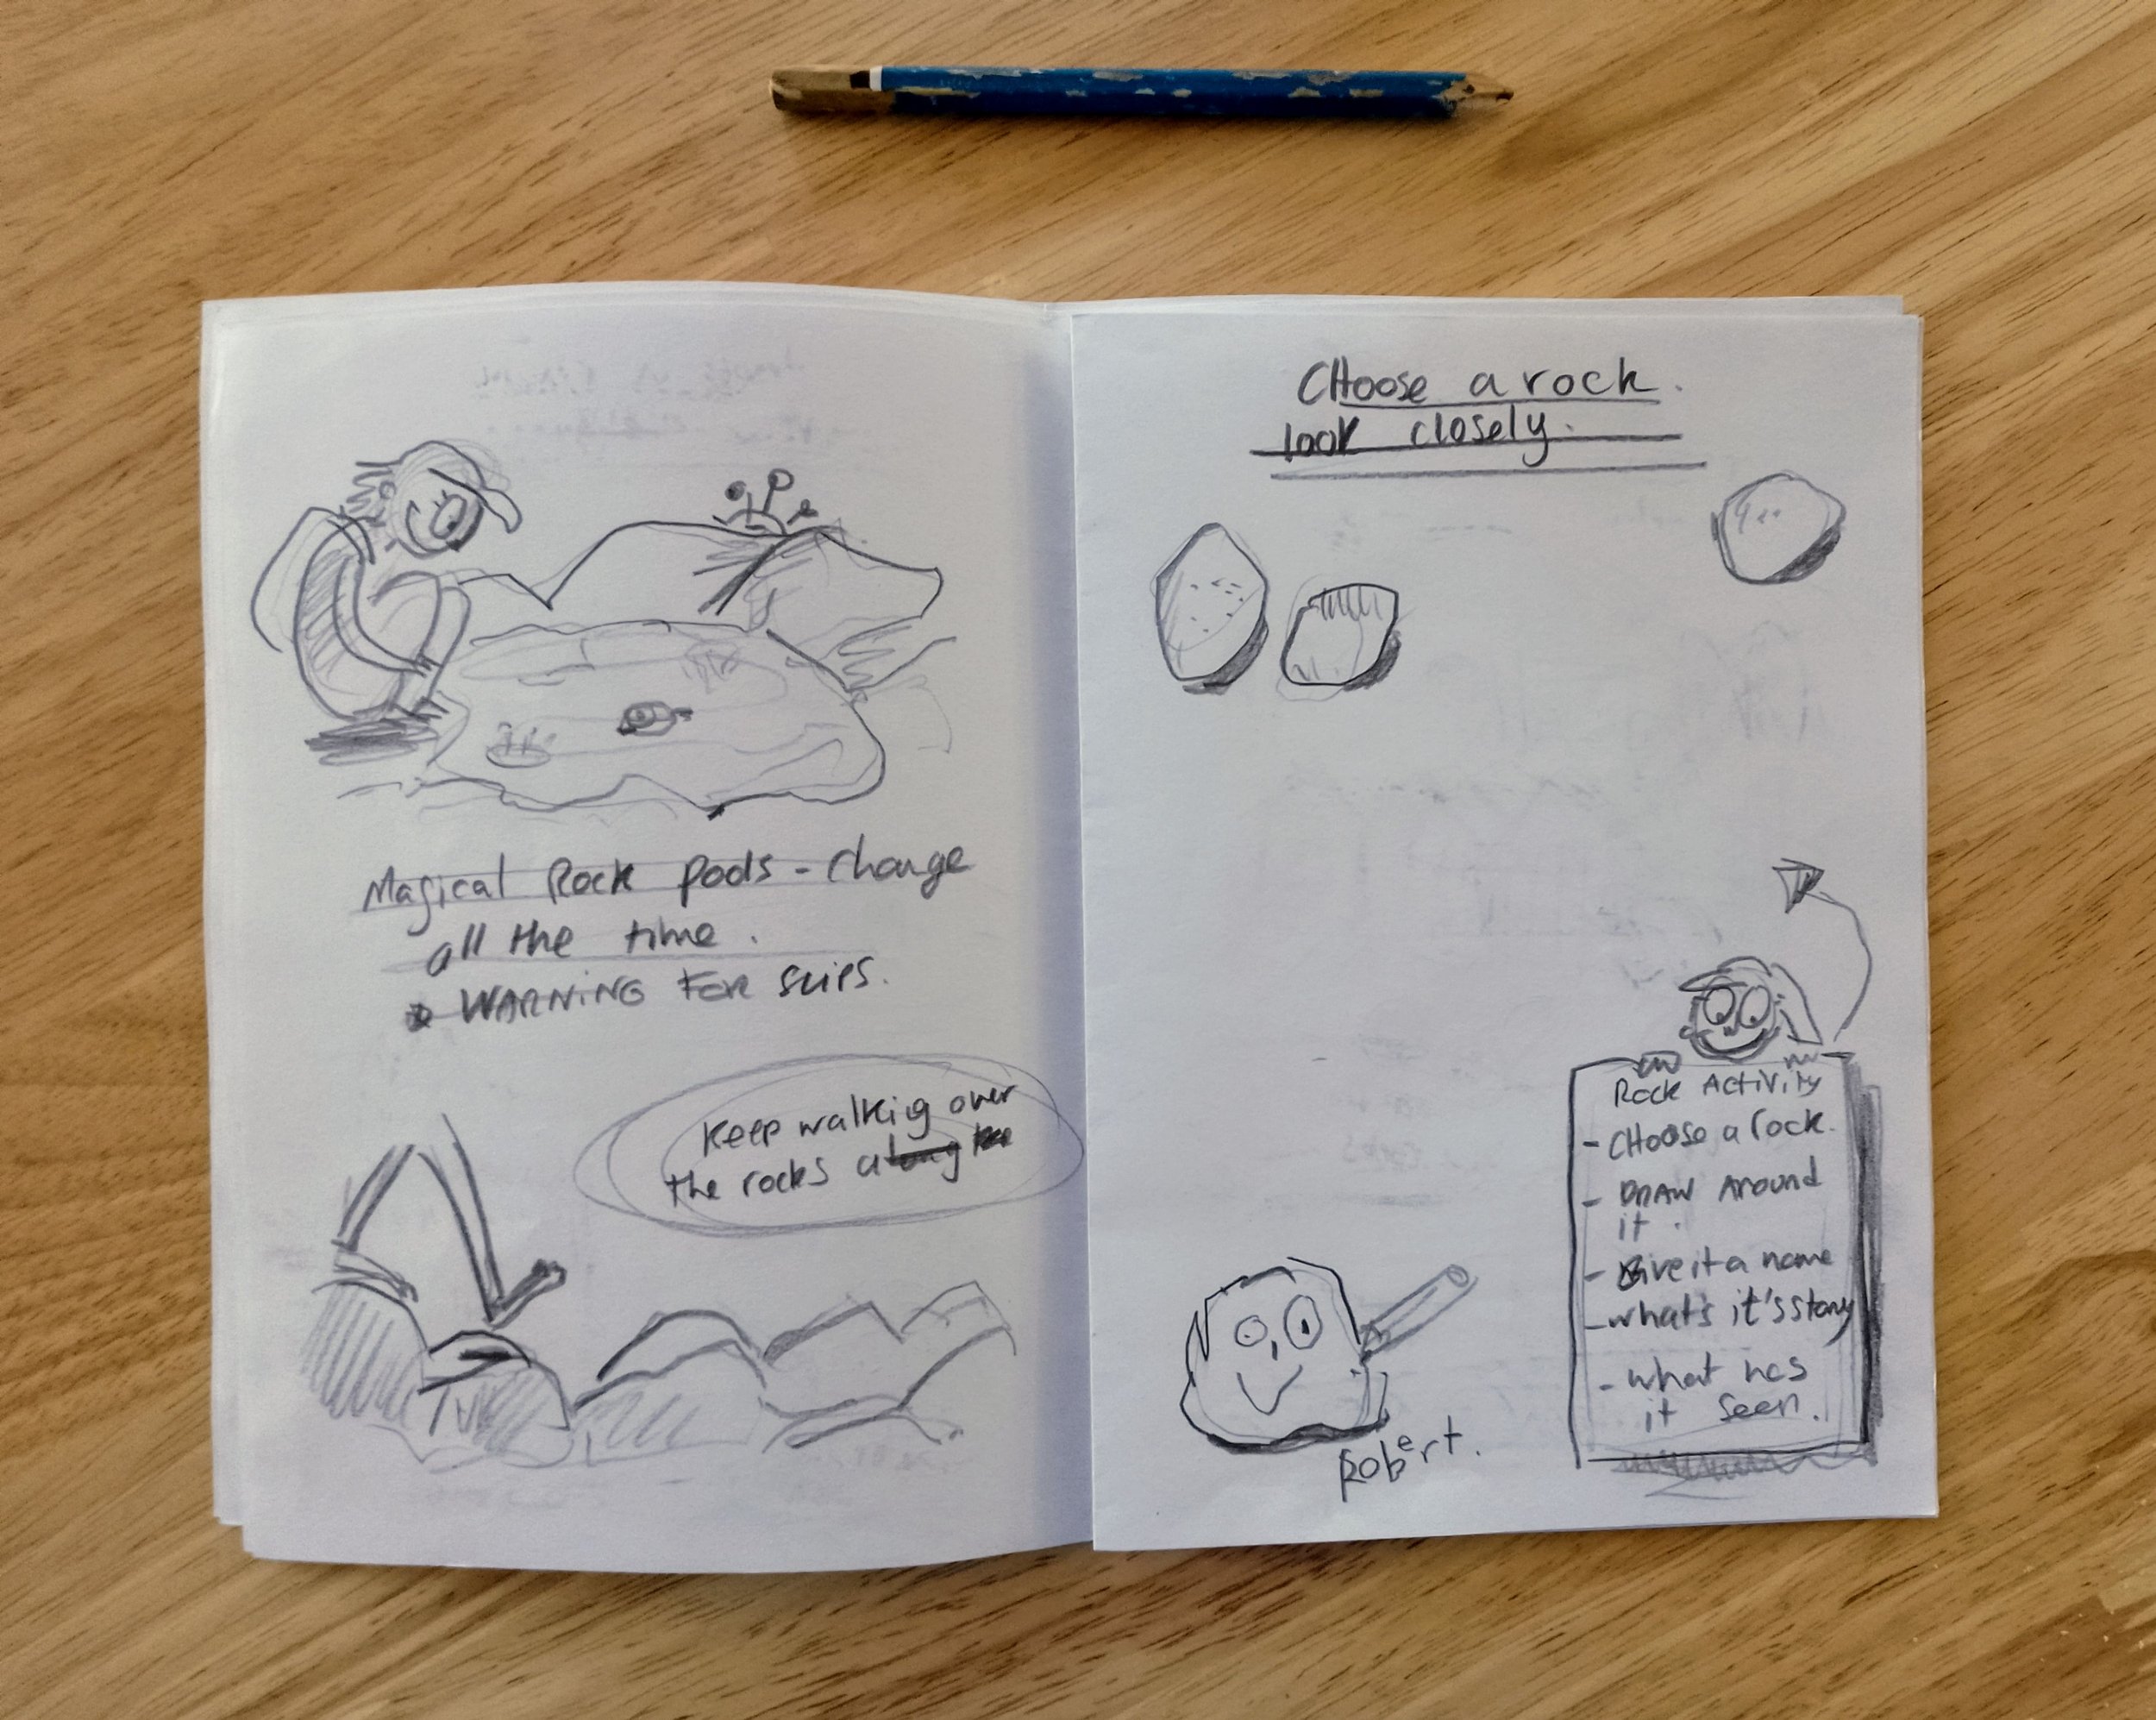 Magical Rock Pools - change
all the time.
* WARNING FOR SLIPS.
Keep walking over
the rocks along the
CHoose a rock.
look closely.
Rock Activity
- CHoose a rock.
- DRAW Around
it.
- Give it a name
- what's it's story
- what has
it seen.
Robert.